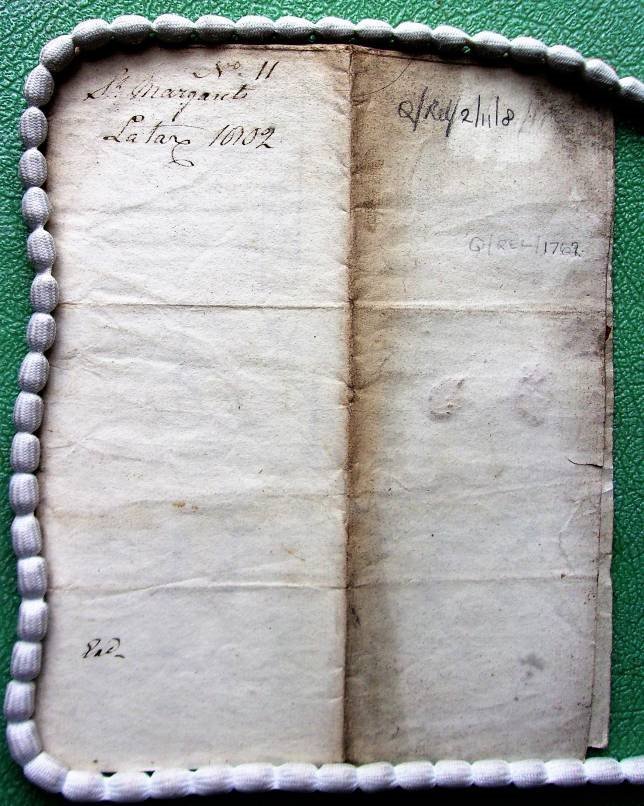 No. 11
St. Margarets
Latax 1802
Exd.
Q/Rel/2/11/8
Q/REL/1762